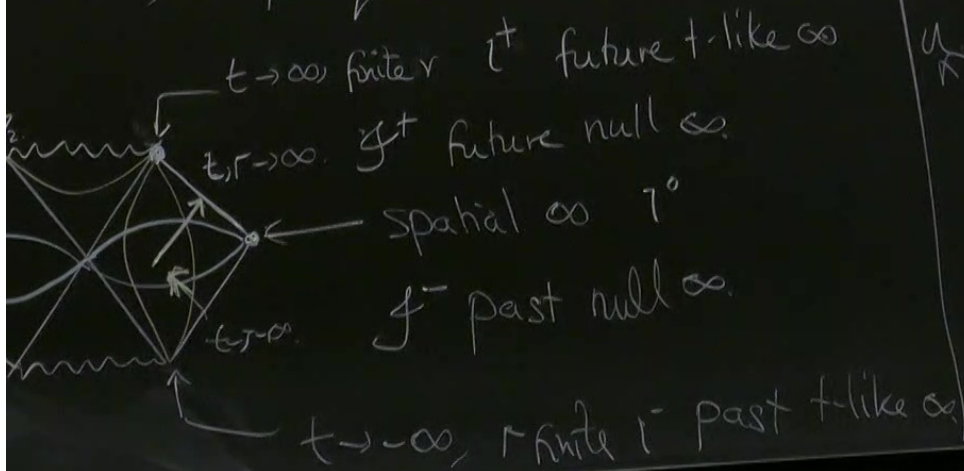 t→∞, finite r i⁺ future t-like ∞
t,r→∞. 𝓘⁺ future null ∞.
spatial ∞ i⁰
𝓘⁻ past null ∞.
t→-∞, r finite i⁻ past t-like ∞